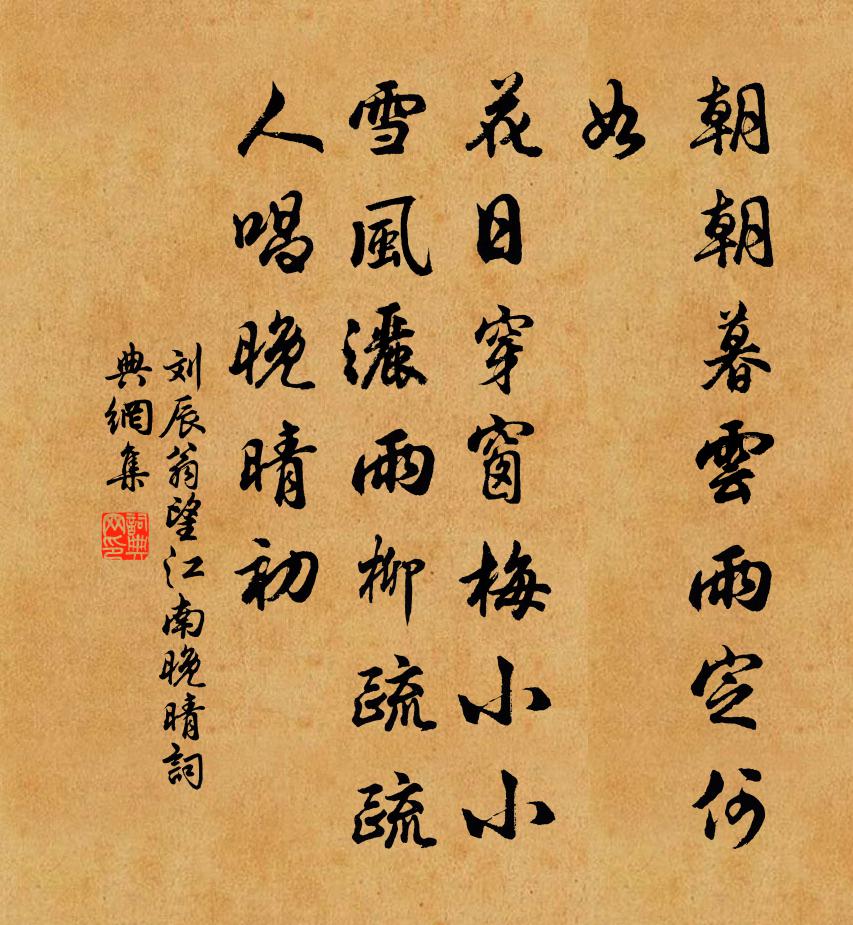 朝朝暮雲雨定何
如
花日穿窗梅小小
雪風灑雨柳疏疏
人唱晚晴初
刘辰翁望江南晚晴詞
典網集
詞典
网印